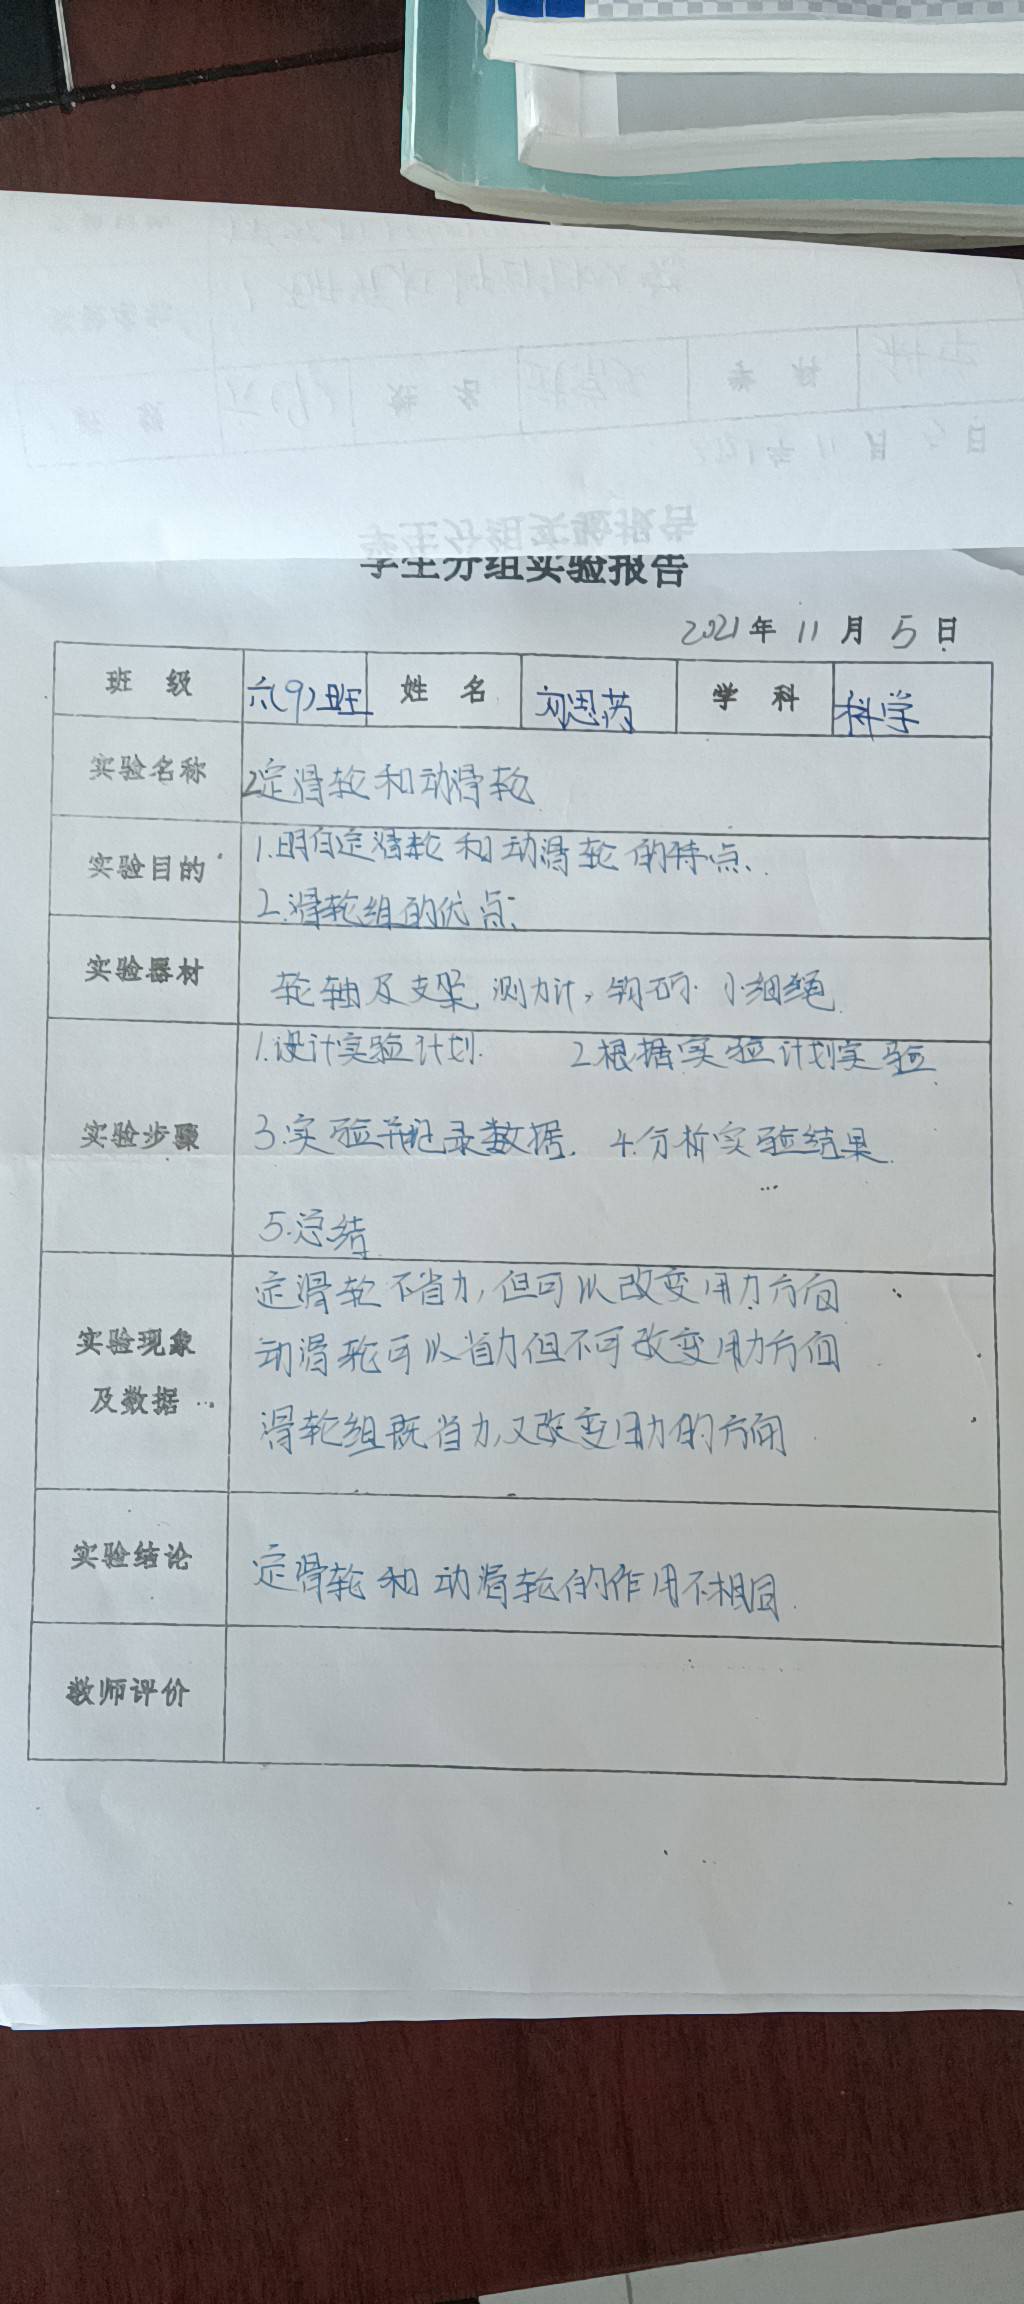 学生分组实验报告
2021年 11月 5日
班 级 六(9)班 姓 名 刘思芮 学 科 科学
实验名称 2定滑轮和动滑轮
实验目的 1.明白定滑轮和动滑轮的特点.
2.滑轮组的优点.
实验器材 轮轴及支架,测力计,钩码.小细绳.
实验步骤 1.设计实验计划. 2.根据实验计划实验.
3.实验并记录数据. 4.分析实验结果.
5.总结.
实验现象及数据 定滑轮不省力,但可以改变用力方向
动滑轮可以省力但不可改变用力方向
滑轮组既省力,又改变用力的方向
实验结论 定滑轮和动滑轮的作用不相同.
教师评价